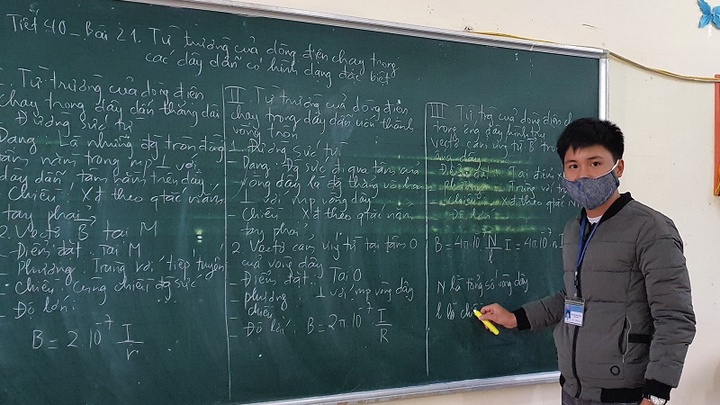 Tiết 40 - Bài 21. Từ trường của dòng điện chạy trong
các dây dẫn có hình dạng đặc biệt
I. Từ trường của dòng điện
chạy trong dây dẫn thẳng dài
Đường sức từ
Dạng: Là những đg tròn đồng
tâm nằm trong mp ⊥ với
dây dẫn tâm nằm trên dây
- Chiều: Xđ theo qtắc nắm
tay phải
2. Vectơ B⃗ tại M
- Điểm đặt: Tại M
- Phương: Trùng với tiếp tuyến
- Chiều: Cùng chiều đg sức
- Độ lớn:
B = 2.10⁻⁷ I/r
II. Từ trường của dòng điện
chạy trong dây dẫn uốn thành
vòng tròn
1. Đường sức từ
- Dạng: Đg sức đi qua tâm của
vòng dây là đg thẳng vô hạn
⊥ với mp vòng dây
- Chiều: Xđ theo qtắc nắm
tay phải
2. Vectơ cảm ứng từ tại tâm O
của vòng dây
- Điểm đặt: Tại O
- phương: ⊥ với mp vòng dây
- chiều:
- Độ lớn: B = 2π.10⁻⁷ I/R
III. Từ trg của dòng điện
trong ống dây hình trụ
Vectơ cảm ứng từ B⃗ trong
ống dây
Điểm đặt: Tại điểm
- Phương: Trùng với
- Chiều: Xđ theo qtắc
- Độ lớn:
B = 4π.10⁻⁷ N/l I = 4π.10⁻⁷ n I
N là tổng số vòng dây
l là chiều